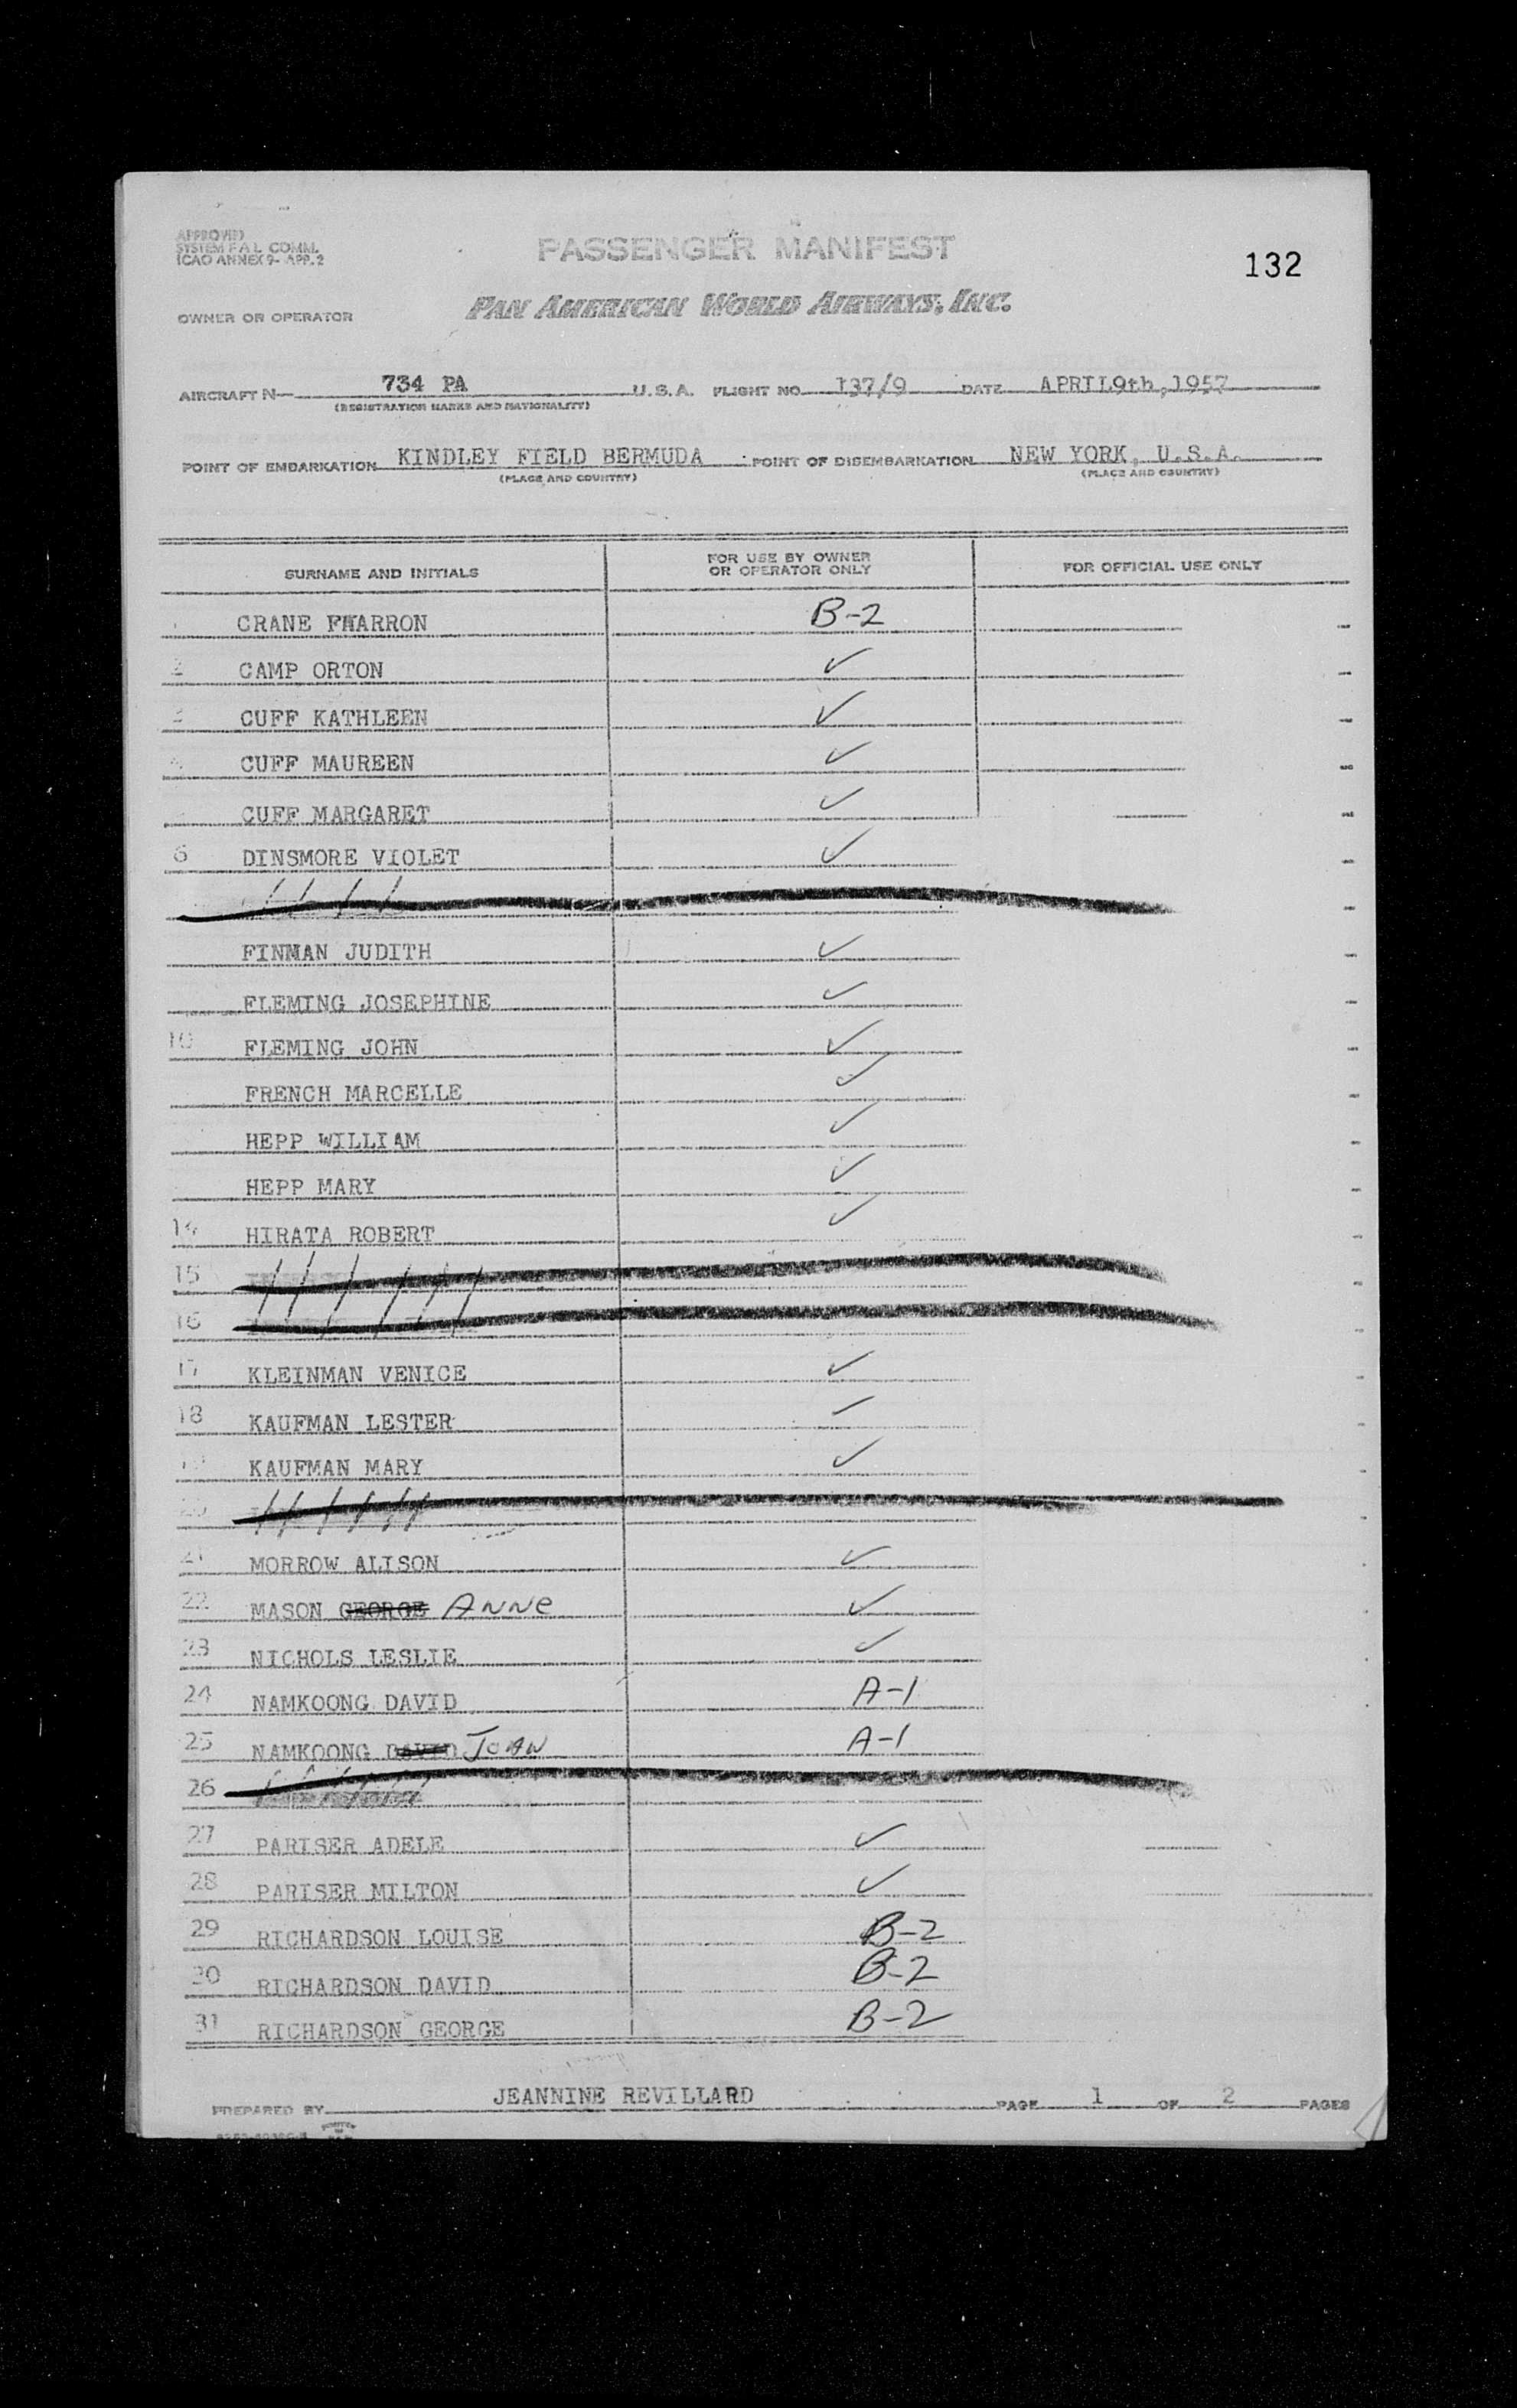 APPROVED
SYSTEM F A L COMM.
ICAO ANNEX 9- APP. 2
PASSENGER MANIFEST
132
OWNER OR OPERATOR
PAN AMERICAN WORLD AIRWAYS, INC.
AIRCRAFT N— 734 PA U.S.A. FLIGHT NO. 137/9 DATE APRIL9th,1957
(REGISTRATION MARKS AND NATIONALITY)
POINT OF EMBARKATION KINDLEY FIELD BERMUDA POINT OF DISEMBARKATION NEW YORK, U.S.A.
(PLACE AND COUNTRY) (PLACE AND COUNTRY)
SURNAME AND INITIALS FOR USE BY OWNER OR OPERATOR ONLY FOR OFFICIAL USE ONLY
CRANE FHARRON B-2
2 CAMP ORTON ✓
3 CUFF KATHLEEN ✓
4 CUFF MAUREEN ✓
CUFF MARGARET ✓
6 DINSMORE VIOLET ✓
FINMAN JUDITH ✓
FLEMING JOSEPHINE ✓
10 FLEMING JOHN ✓
FRENCH MARCELLE ✓
HEPP WILLIAM ✓
HEPP MARY ✓
14 HIRATA ROBERT ✓
15
16
17 KLEINMAN VENICE ✓
18 KAUFMAN LESTER ✓
19 KAUFMAN MARY ✓
20
21 MORROW ALISON ✓
22 MASON GEORGE ANNE ✓
23 NICHOLS LESLIE ✓
24 NAMKOONG DAVID A-1
25 NAMKOONG DAVID JOAN A-1
26
27 PARISER ADELE ✓
28 PARISER MILTON ✓
29 RICHARDSON LOUISE B-2
30 RICHARDSON DAVID B-2
31 RICHARDSON GEORGE B-2
PREPARED BY JEANNINE REVILLARD PAGE 1 OF 2 PAGES